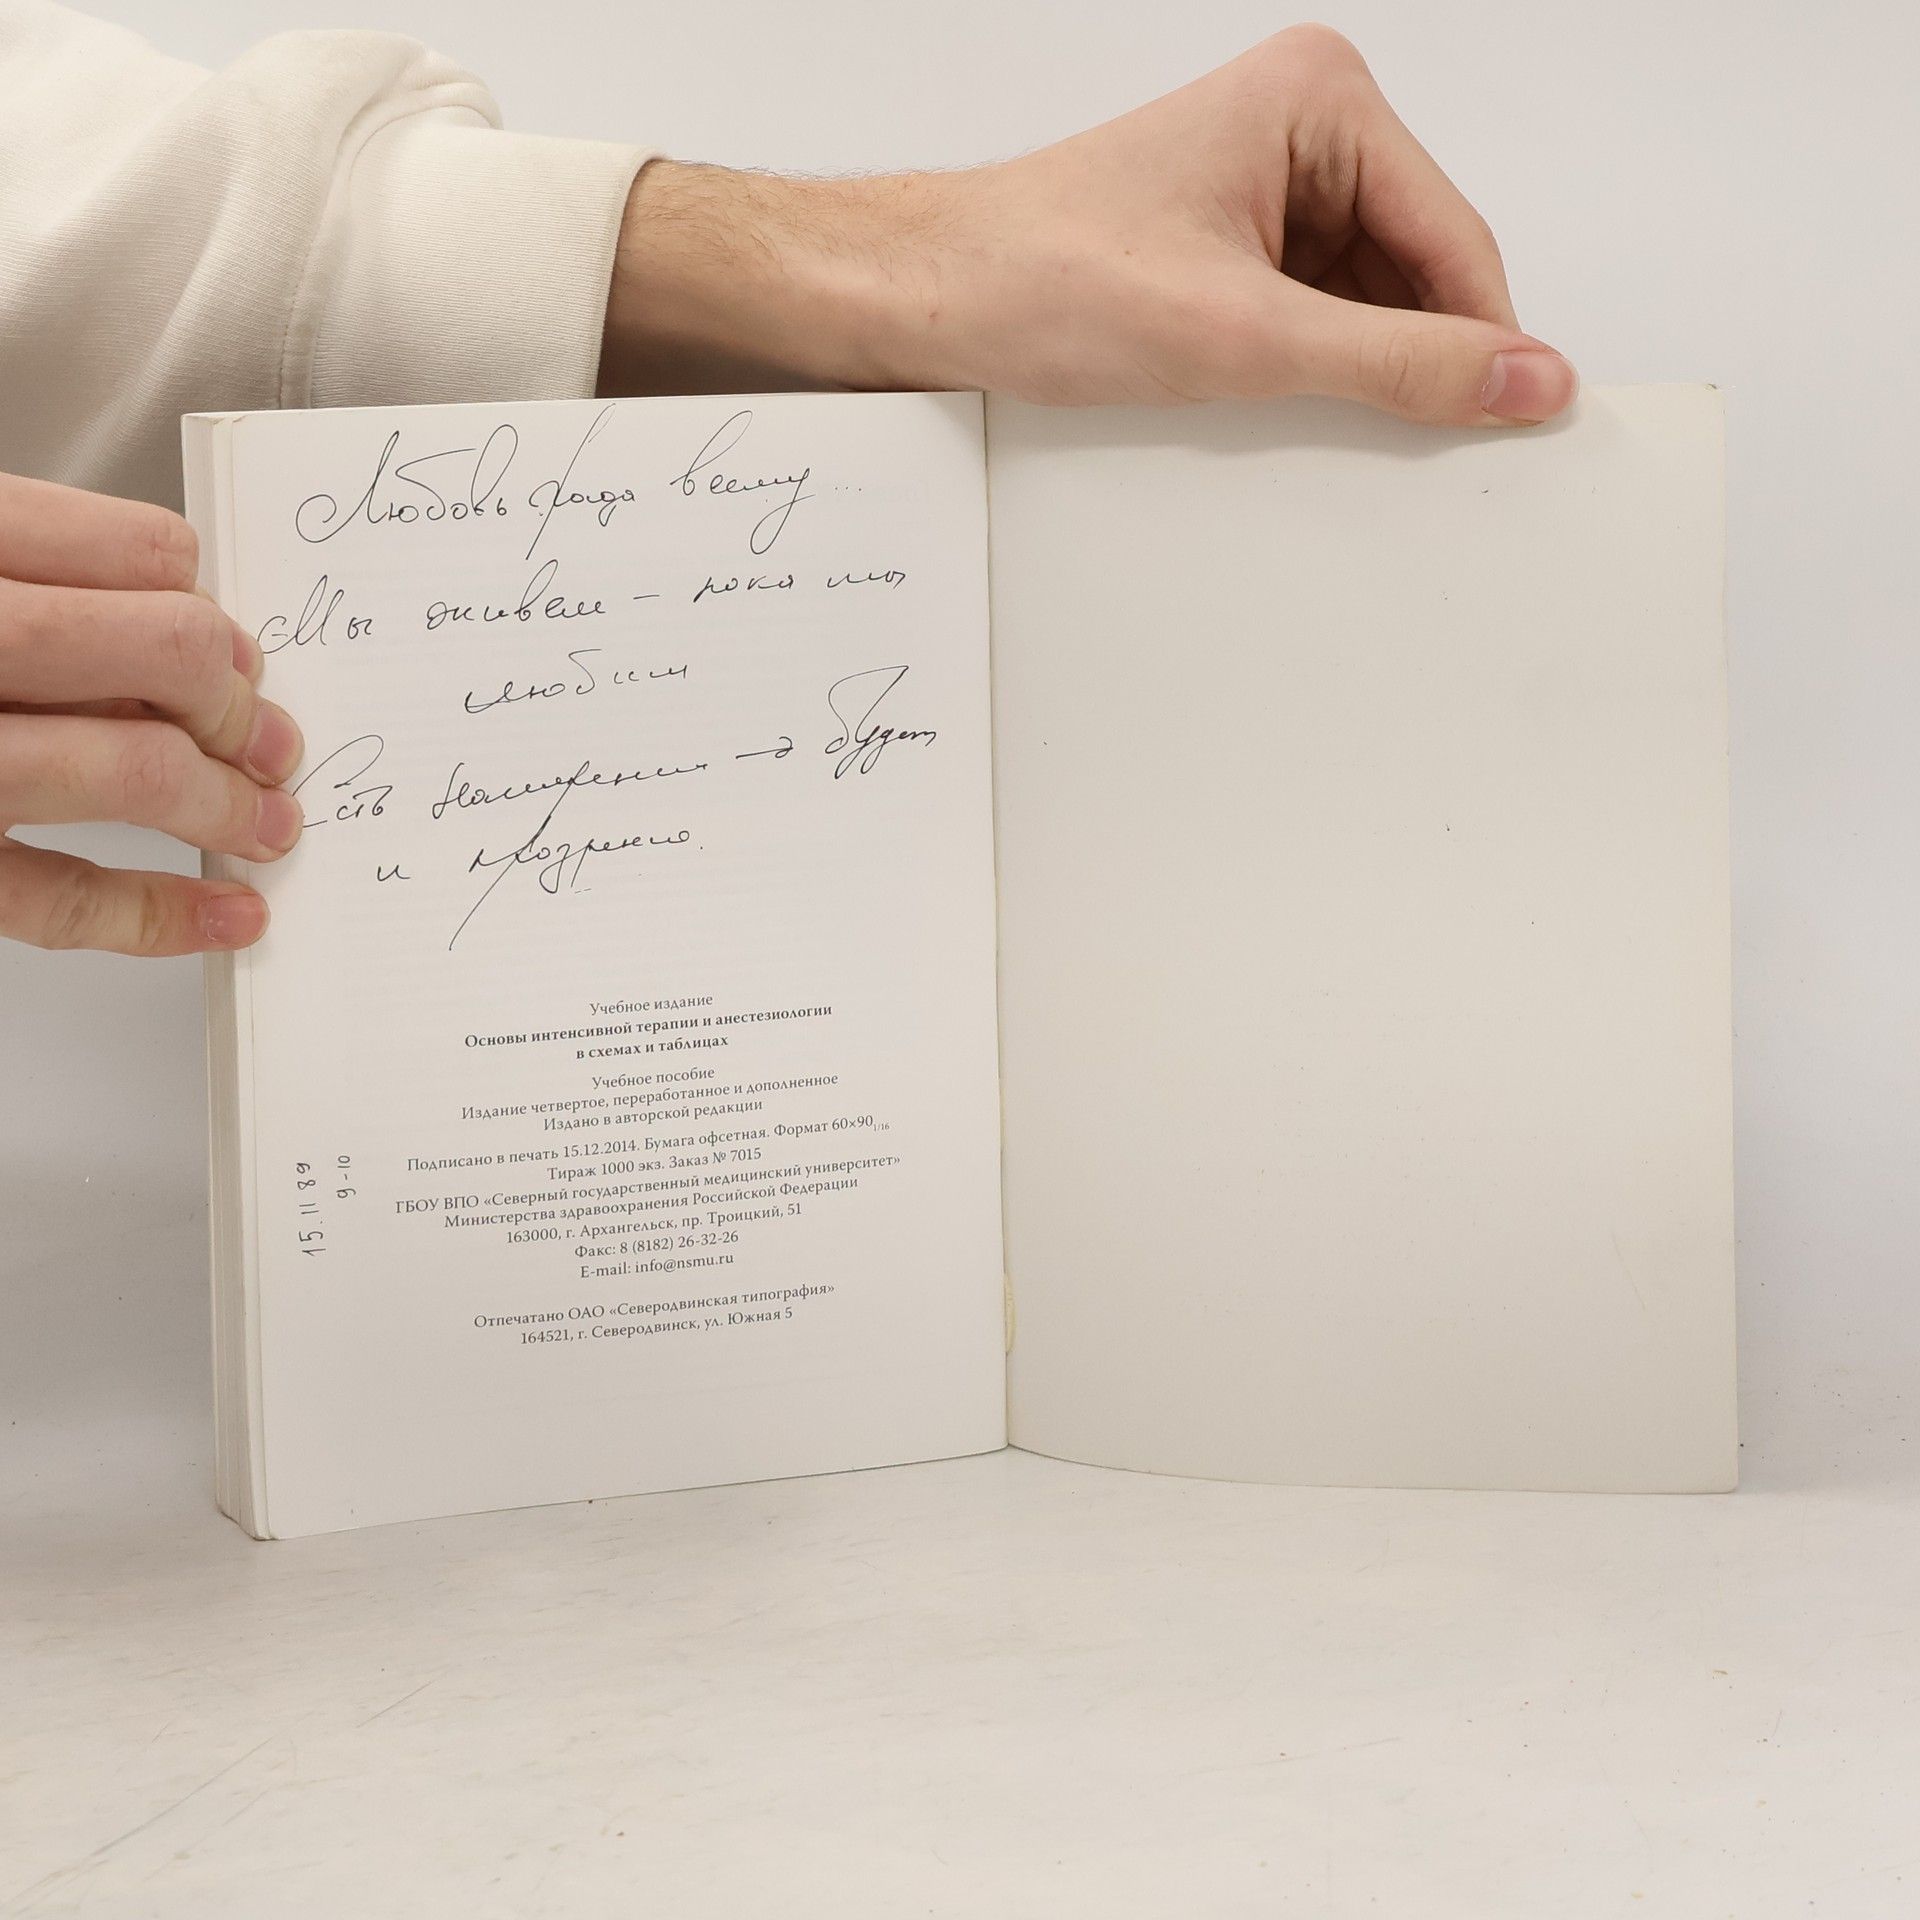 Любовь рада всему...
Мы живем - пока мы
любим
Есть намерение → будет
и прозрение.
Учебное издание
Основы интенсивной терапии и анестезиологии
в схемах и таблицах
Учебное пособие
Издание четвертое, переработанное и дополненное
Издано в авторской редакции
Подписано в печать 15.12.2014. Бумага офсетная. Формат 60×90 1/16
Тираж 1000 экз. Заказ № 7015
ГБОУ ВПО «Северный государственный медицинский университет»
Министерства здравоохранения Российской Федерации
163000, г. Архангельск, пр. Троицкий, 51
Факс: 8 (8182) 26-32-26
E-mail: info@nsmu.ru
Отпечатано ОАО «Северодвинская типография»
164521, г. Северодвинск, ул. Южная 5
15.11 89
9-10